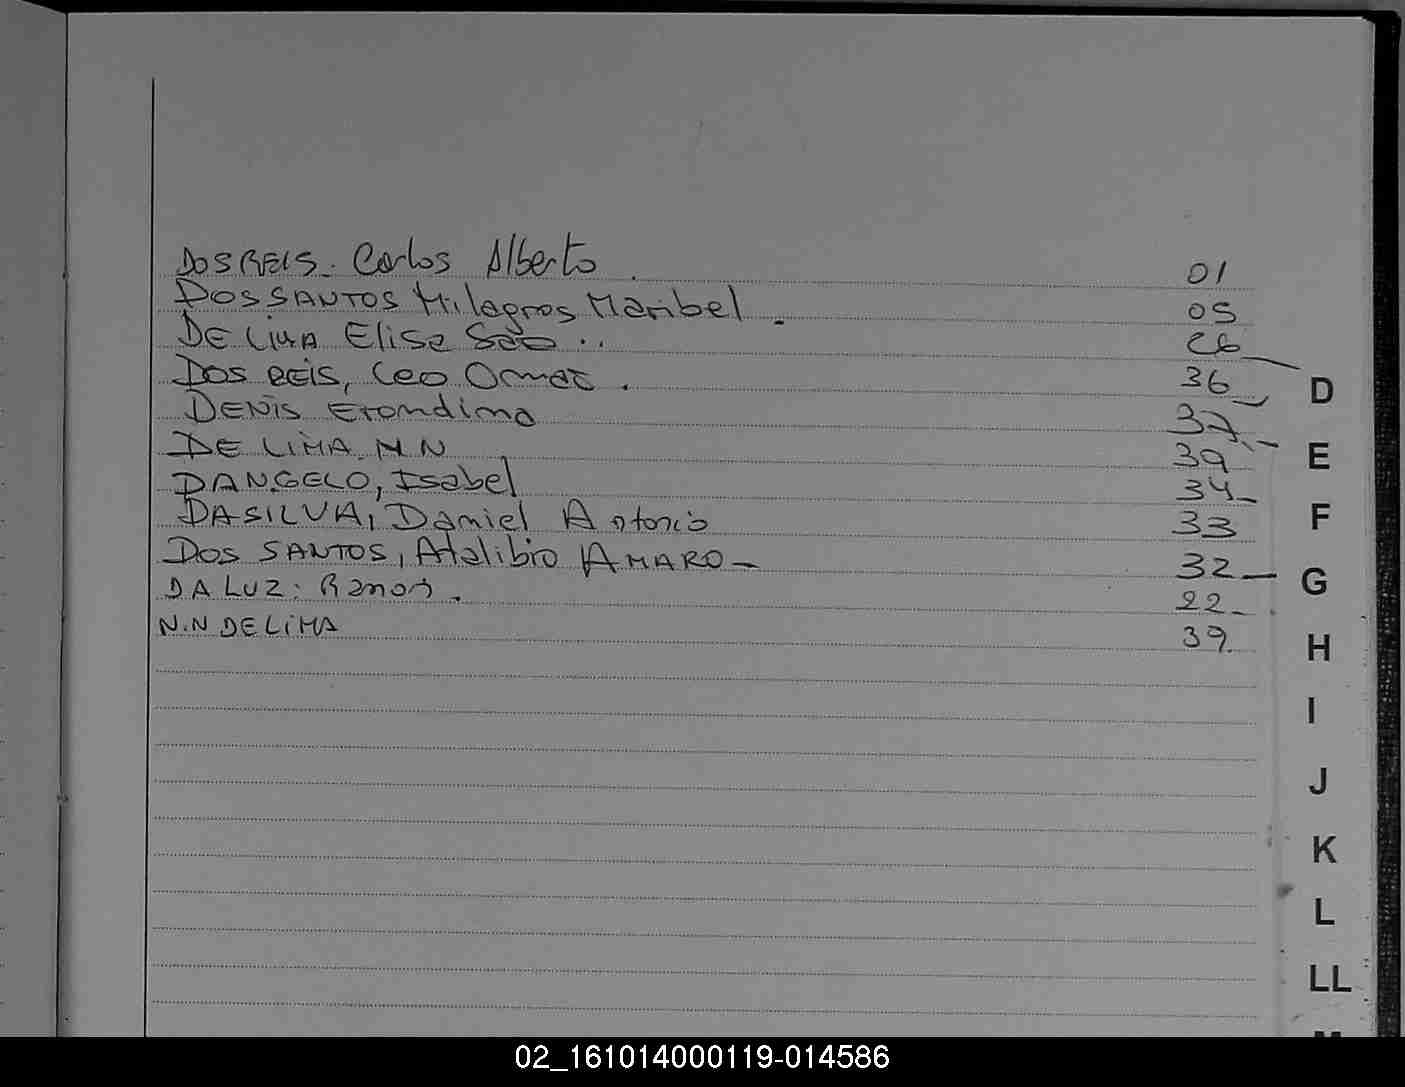 DOS REIS. Carlos Alberto . 01
DOS SANTOS Milagros Maribel . 05
DE LIMA Elisa .. 26
DOS REIS, Leo Omar . 36
DENIS 37
DE LIMA N N 39
DANGELO, Isabel 34
DASILVA, Daniel Antonio 33
DOS SANTOS, Atalibio AMARO - 32
DA LUZ: Ramon . 22
N.N DE LIMA 39
D
E
F
G
H
I
J
K
L
LL
02_161014000119-014586